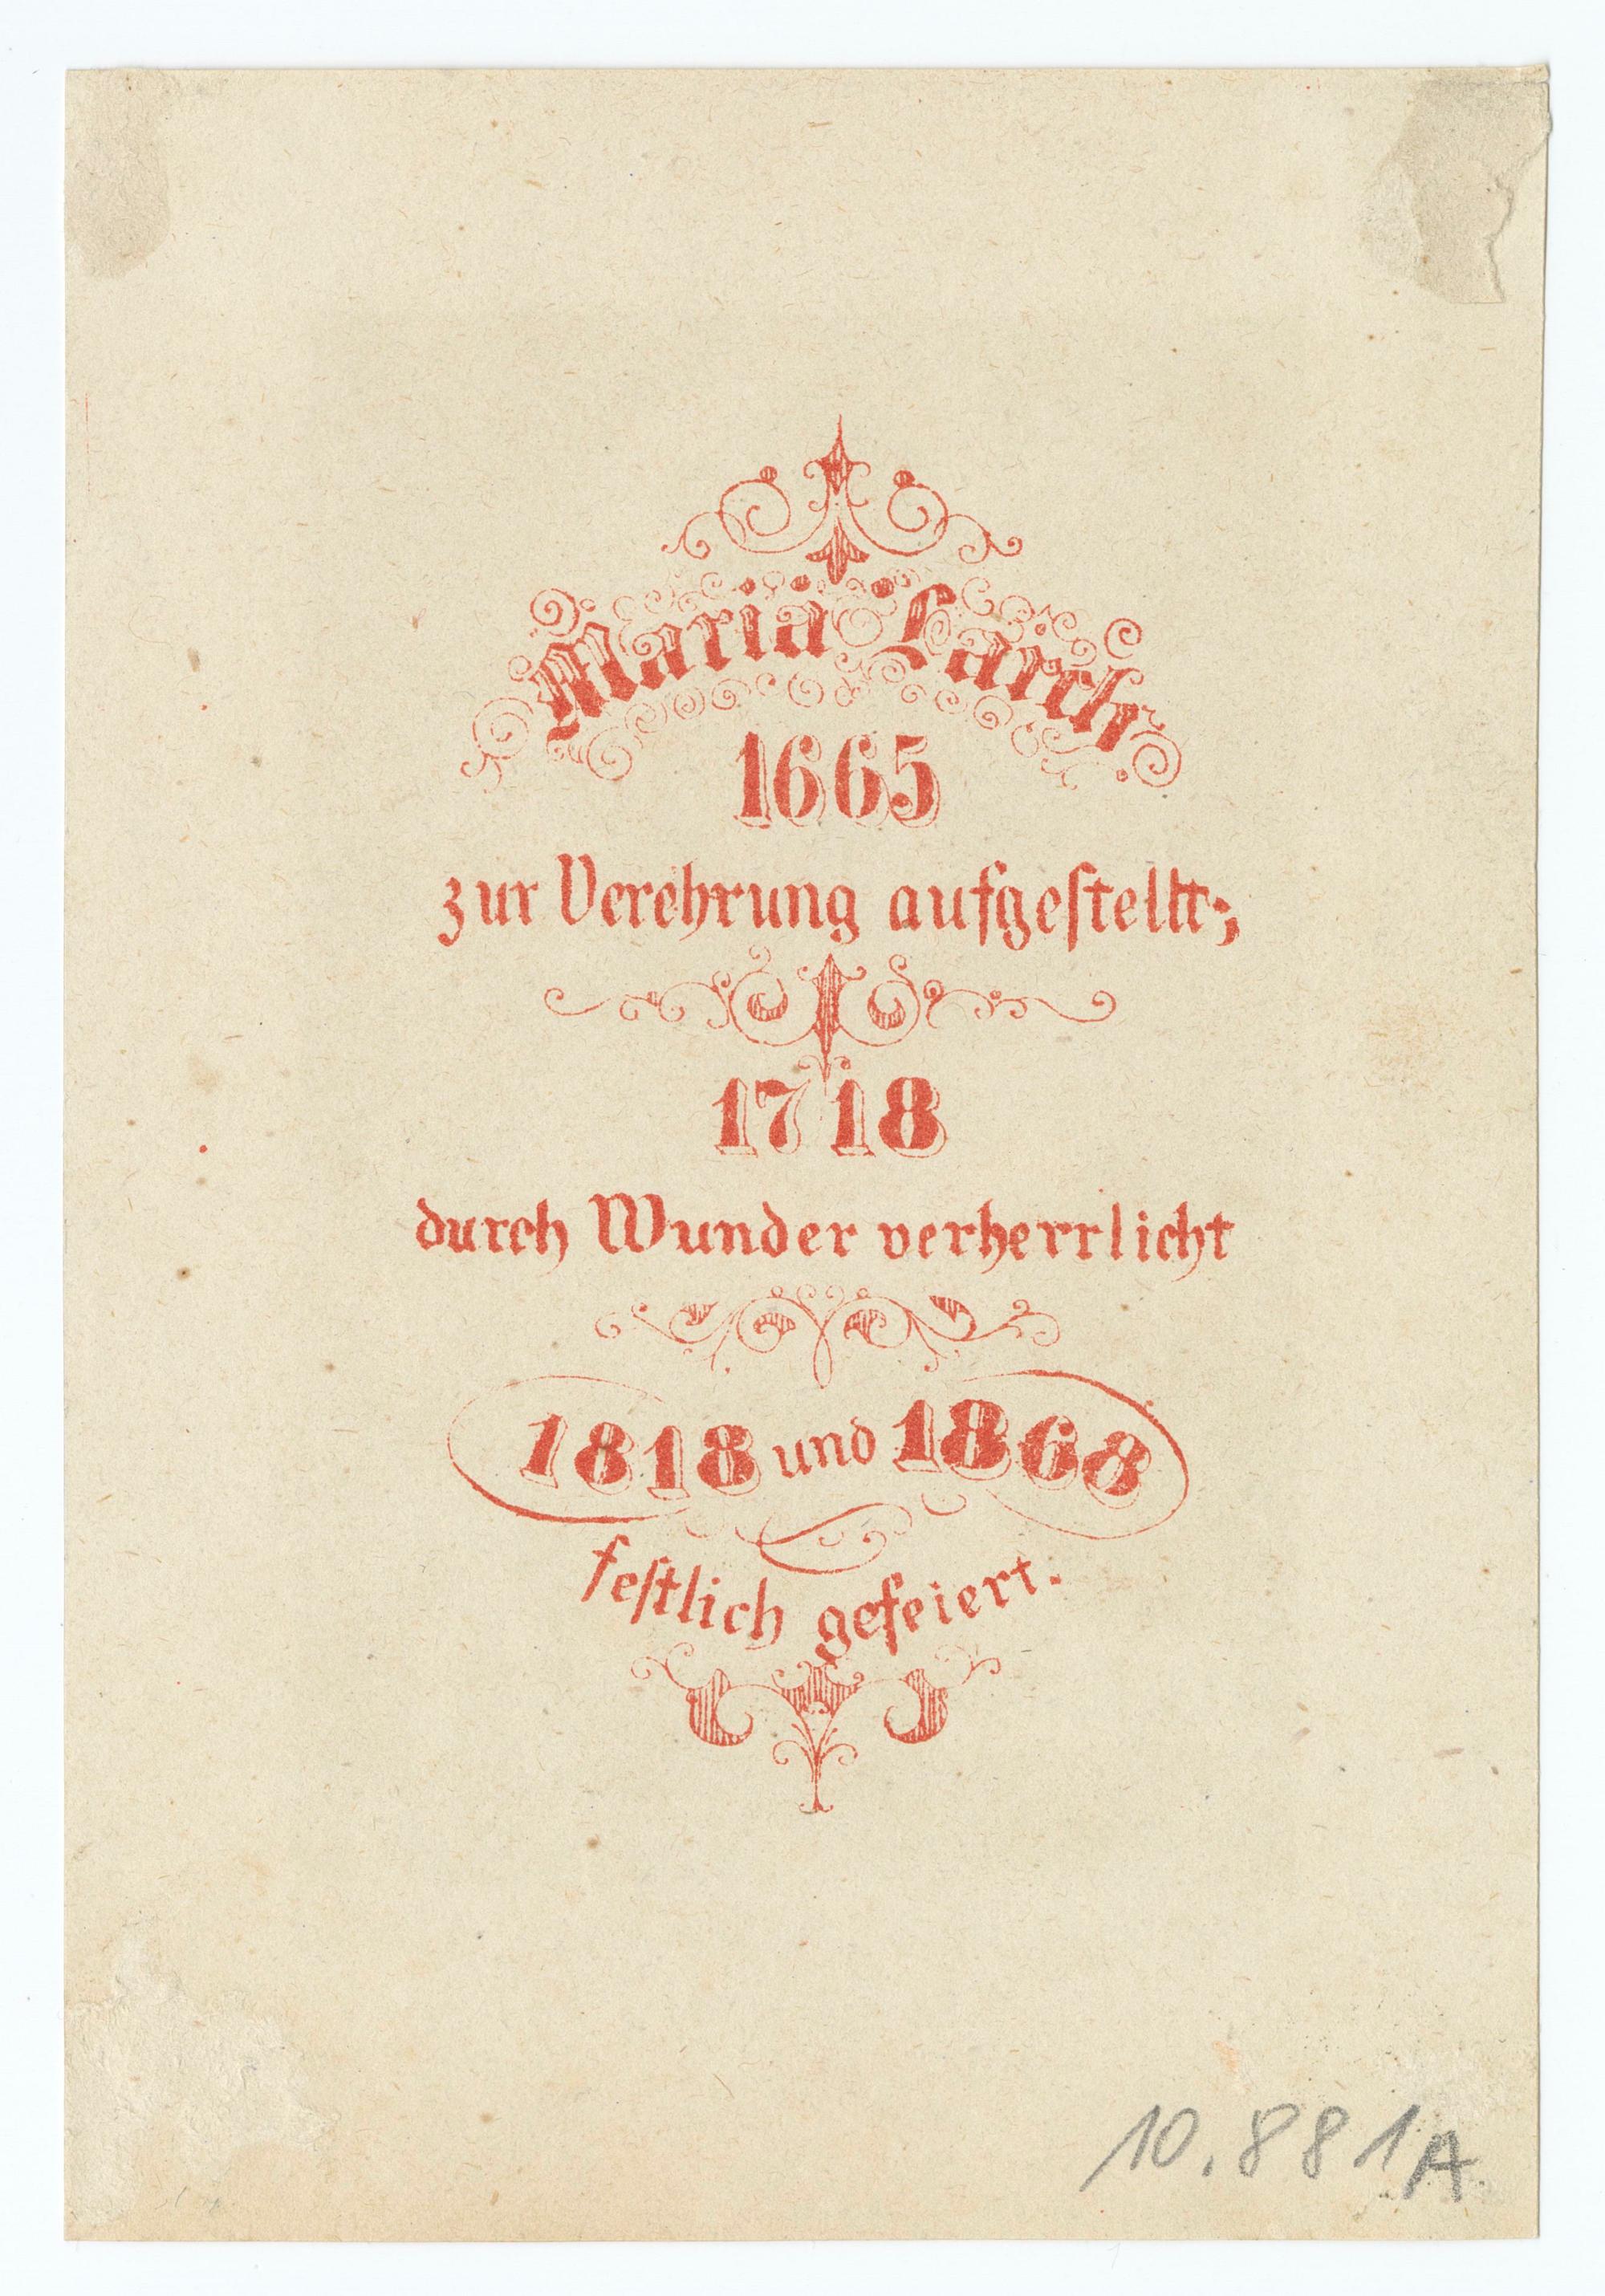 Maria Larch
1665
zur Verehrung aufgestellt;
1718
durch Wunder verherrlicht
1818 und 1868
festlich gefeiert.
10.881A